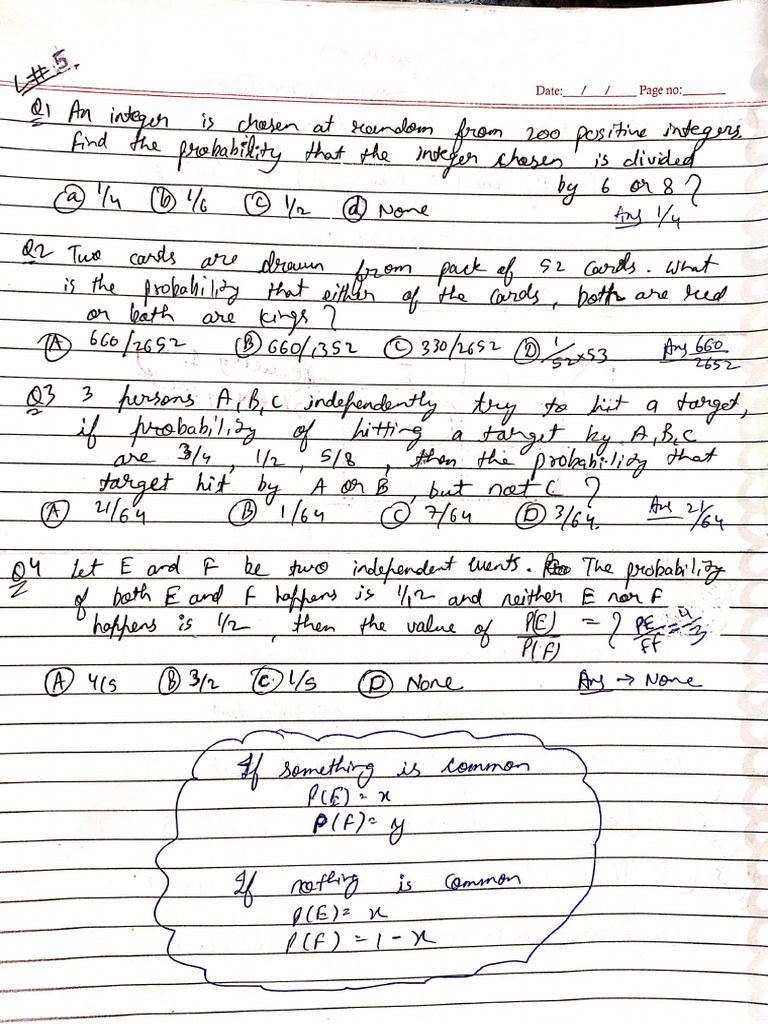 L#5.
Date: / / Page no:
Q1 An integer is chosen at random from 200 positive integers.
find the probability that the integer chosen is divided
by 6 or 8 ?
(a) 1/4 (b) 1/6 (c) 1/2 (d) None
Ans 1/4
Q2 Two cards are drawn from pack of 52 cards. What
is the probability that either of the cards, both are red
or both are kings ?
(A) 660/2652 (B) 660/1352 (C) 330/2652 (D) 1/52×53 Ans 660/2652
Q3 3 persons A, B, C independently try to hit a target,
if probability of hitting a target by A, B, C
are 3/4, 1/2, 5/8, then the probability that
target hit by A or B, but not C ?
(A) 21/64 (B) 1/64 (C) 7/64 (D) 3/64. Ans 21/64
Q4 Let E and F be two independent events. The probability
of both E and F happens is 1/12 and neither E nor F
happens is 1/2, then the value of P(E)/P(F) = ? PE/FF = 4/3
(A) 4/5 (B) 3/2 (C) 1/5 (D) None Ans → None
If something is common
P(E) = x
P(F) = y
If nothing is common
P(E) = x
P(F) = 1 - x